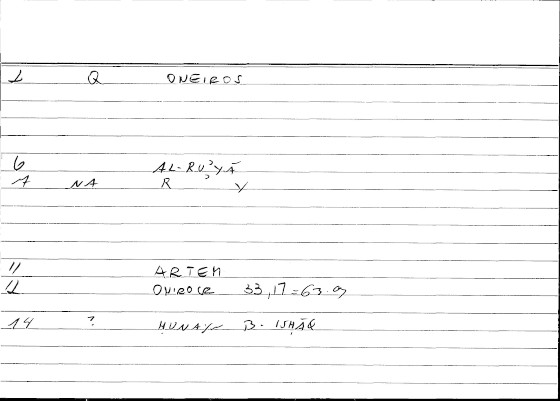 1 Q ONEIROS
6 AL-RUʾYĀ
7 NA R ʾ Y
11 ARTEM
12 ONIROCR 33,17=63.9
14 ? ḤUNAYN B. ISḤĀQ